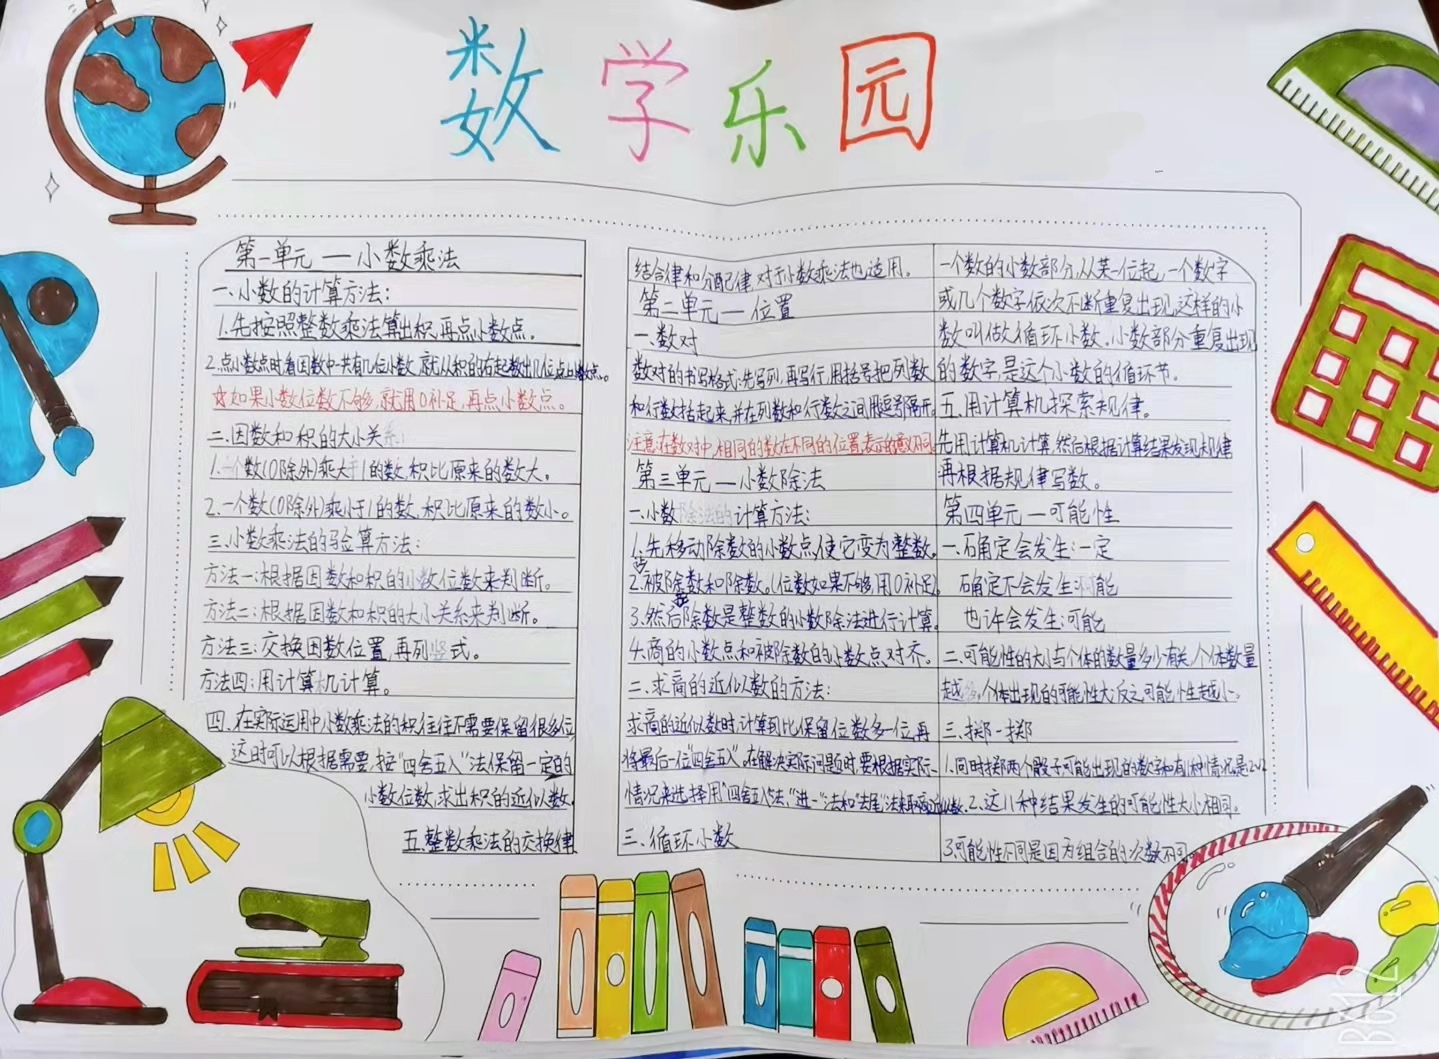 数学乐园
第一单元—小数乘法
一、小数的计算方法:
1.先按照整数乘法算出积,再点小数点。
2.点小数点时看因数中共有几位小数,就从积的右起数出几位点上小数点。
☆如果小数位数不够,就用0补足,再点小数点。
二、因数和积的大小关系:
1.一个数(0除外)乘大于1的数,积比原来的数大。
2.一个数(0除外)乘小于1的数,积比原来的数小。
三、小数乘法的验算方法:
方法一:根据因数和积的小数位数来判断。
方法二:根据因数和积的大小关系来判断。
方法三:交换因数位置,再列竖式。
方法四:用计算机计算。
四、在实际运用中小数乘法的积往往不需要保留很多位,
这时可以根据需要,按“四舍五入”法保留一定的
小数位数,求出积的近似数。
五、整数乘法的交换律
结合律和分配律,对于小数乘法也适用。
第二单元—位置
一、数对
数对的书写格式:先写列,再写行,用括号把列数
和行数括起来,并在列数和行数之间用逗号隔开。
注意:在数对中,相同的数在不同的位置,表示的意义不同
第三单元—小数除法
一、小数除法的计算方法:
1.先移动除数的小数点,使它变为整数。
2.被除数和除数。位数如果不够,用0补足。
3.然后除数是整数的小数除法进行计算。
4.商的小数点和被除数的小数点对齐。
二、求商的近似数的方法:
求商的近似数时,计算到比保留位数多一位,再
将最后一位“四舍五入”。在解决实际问题时,要根据实际
情况来选择用“四舍五入”法“进一”法和“去尾”法来取商近似数。
三、循环小数
一个数的小数部分,从某一位起,一个数字
或几个数字依次不断重复出现,这样的小
数叫做循环小数。小数部分重复出现
的数字,是这个小数的循环节。
五、用计算机探索规律。
先用计算机计算,然后根据计算结果发现规律
再根据规律写数。
第四单元—可能性
一、确定会发生:一定
确定不会发生:不可能
也许会发生:可能
二、可能性的大小与个体的数量多少有关,个体数量
越多,个体出现的可能性大,反之可能性越小。
三、掷一掷
1.同时掷两个骰子,可能出现的数字和有11种情况,是2~12
2.这11种结果发生的可能性大小相同。
3.可能性不同是因为组合的次数不同
B612